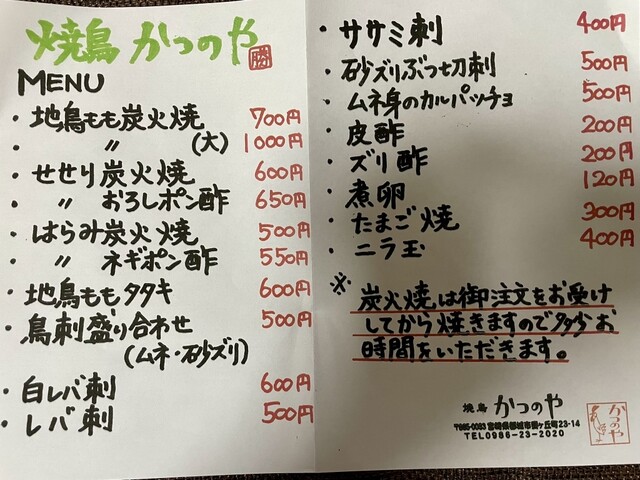 焼鳥 かつのや
勝
MENU
・地鳥もも炭火焼 700円
・〃 (大) 1000円
・せせり炭火焼 600円
・〃 おろしポン酢 650円
・はらみ炭火焼 500円
・〃 ネギポン酢 550円
・地鳥ももタタキ 600円
・鳥刺盛り合わせ 500円
(ムネ・砂ズリ)
・白レバ刺 600円
・レバ刺 500円
・ササミ刺 400円
・砂ズリぶつ切刺 500円
・ムネ身のカルパッチョ 500円
・皮酢 200円
・ズリ酢 200円
・煮卵 120円
・たまご焼 300円
・ニラ玉 400円
※炭火焼は御注文をお受け
してから焼きますので多少お
時間をいただきます。
焼鳥 かつのや
〒885-0083 宮崎県都城市都ヶ丘町23-14
TEL0986-23-2020
かつのや